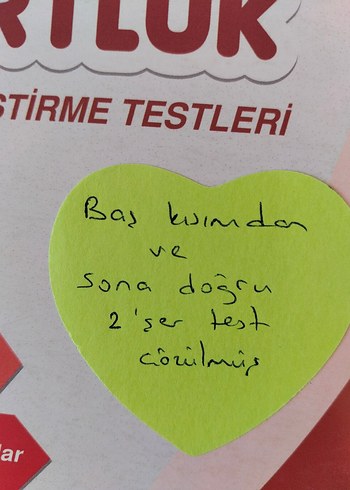 RTLUK
ŞTİRME TESTLERİ
Baş kısımdan
ve
sona doğru
2'şer test
çözülmüş
lar